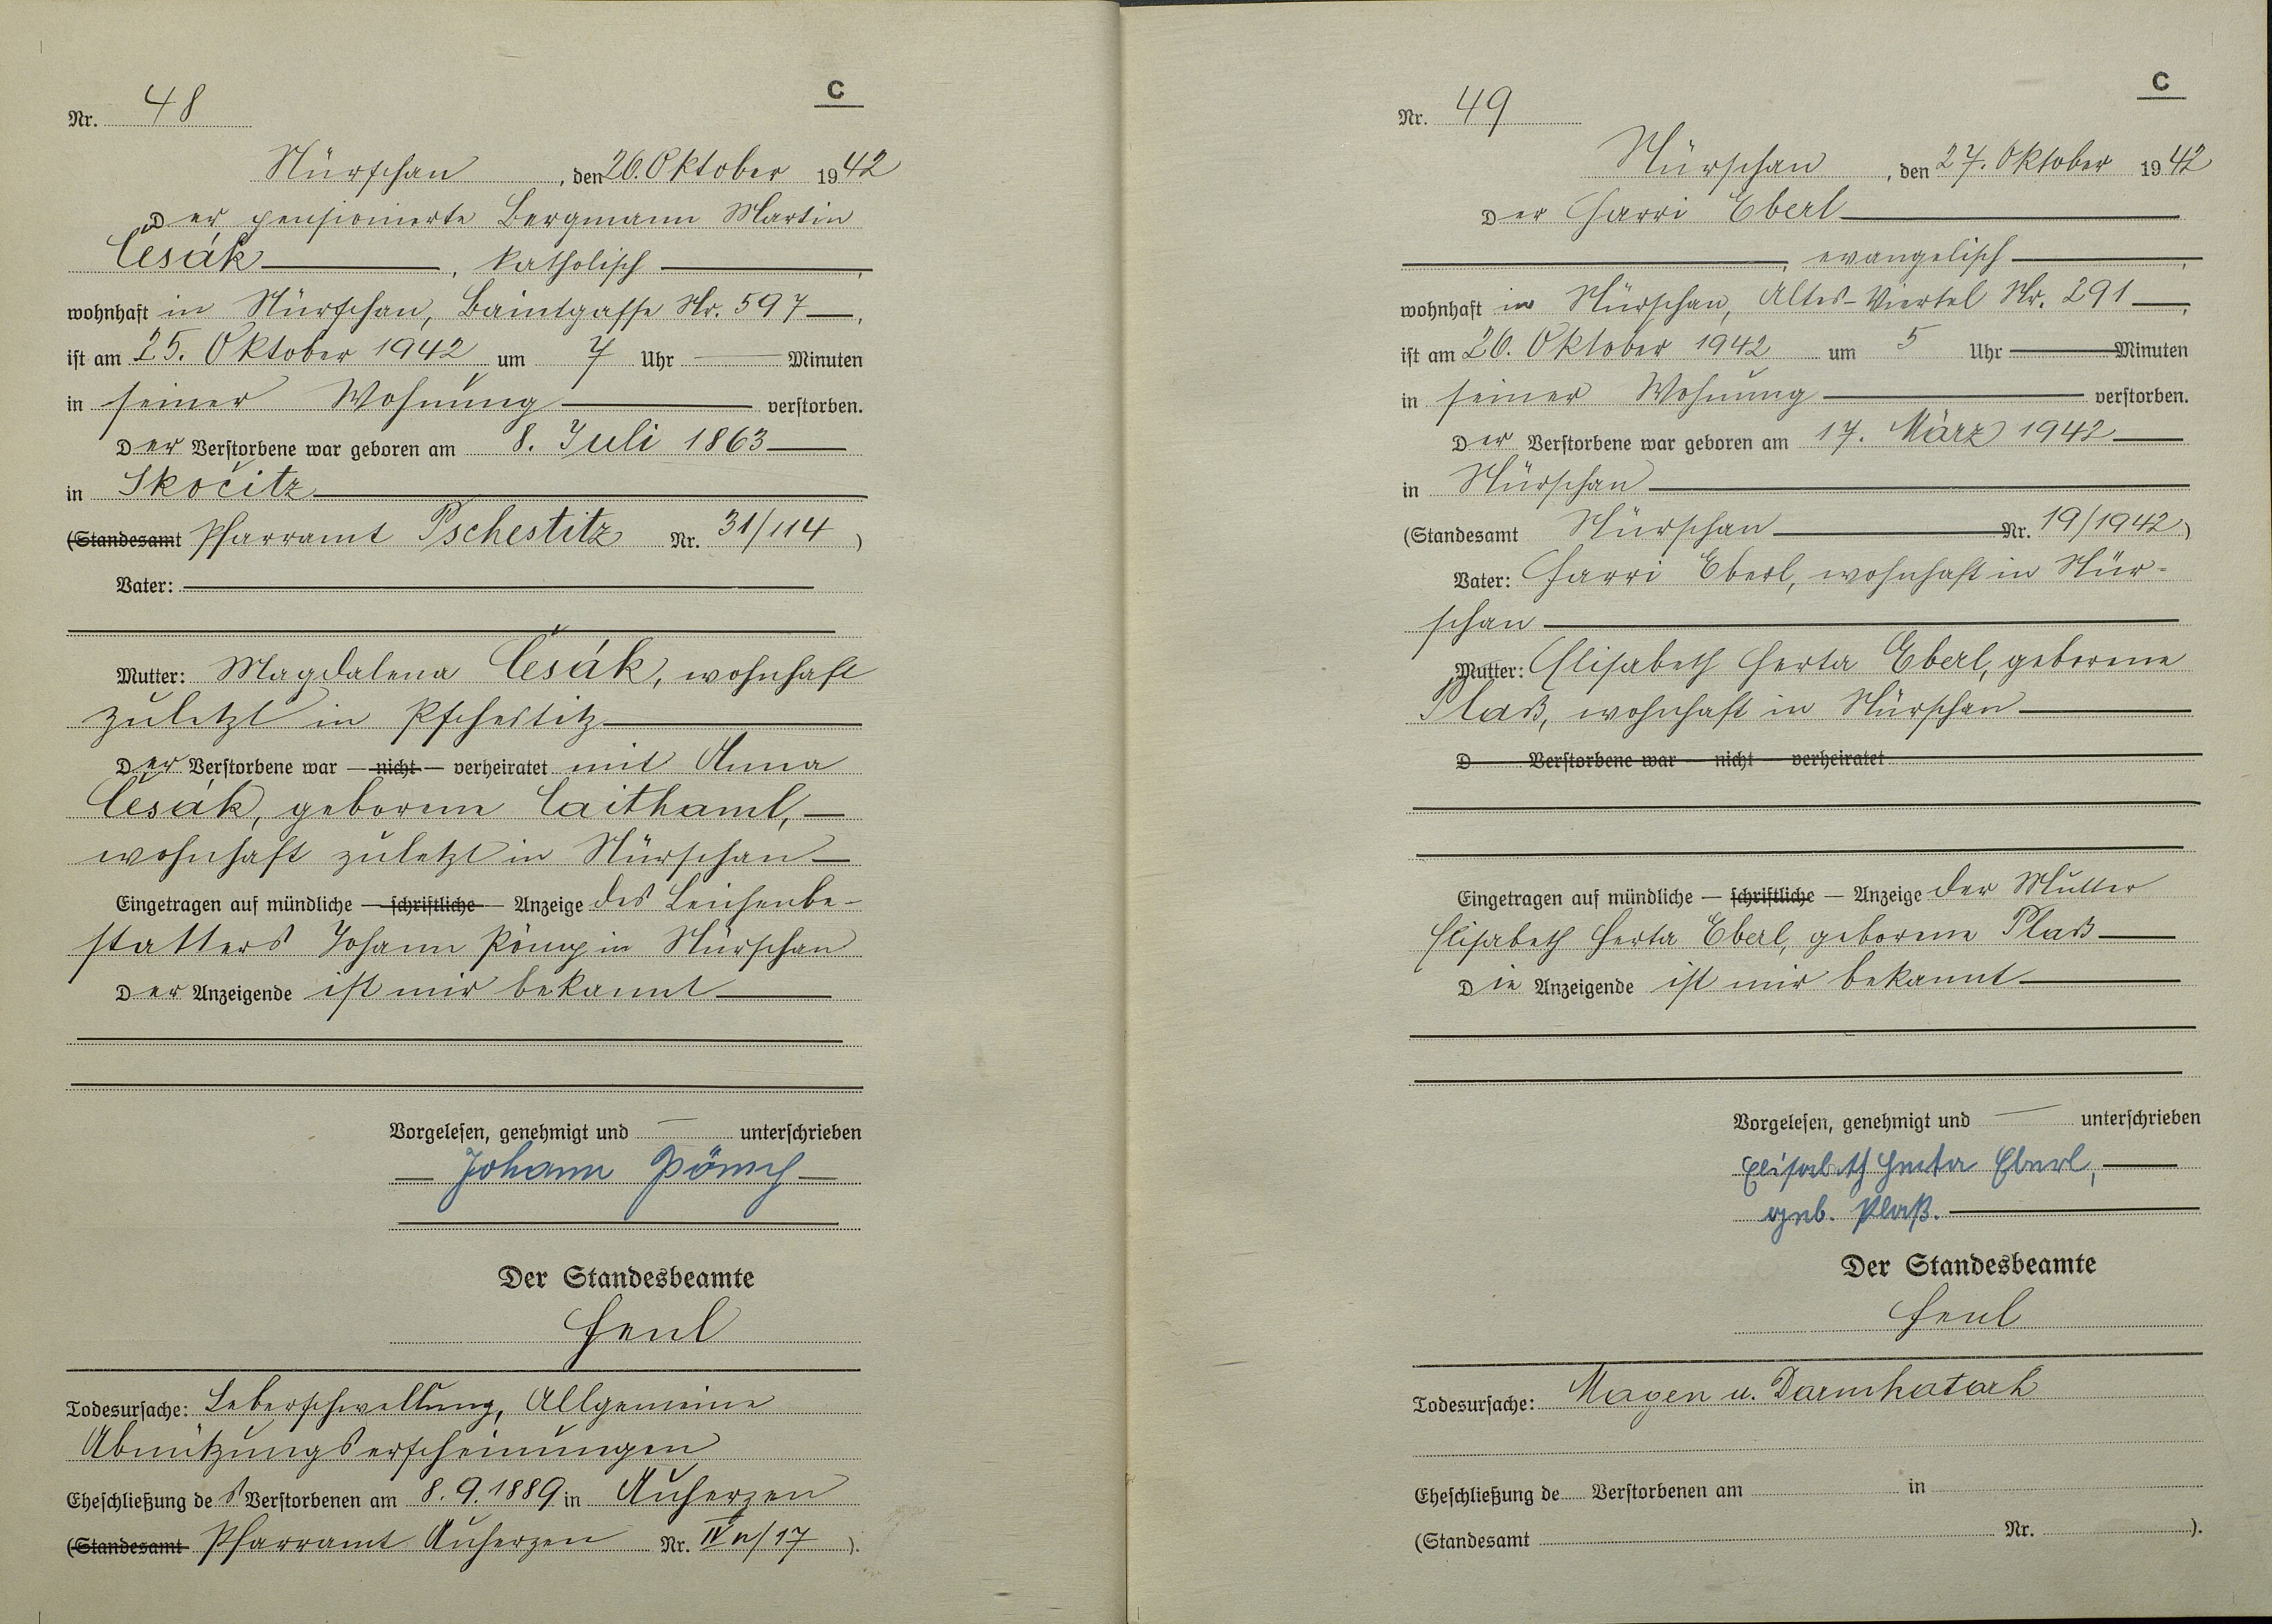 C
Nr. 48
Nürschan, den 26. Oktober 1942
Der pensionierte Bergmann Martin
Česák, katholisch,
wohnhaft in Nürschan, Nr. 597,
ist am 25. Oktober 1942 um 7 Uhr Minuten
in seiner Wohnung verstorben.
Der Verstorbene war geboren am 8. Juli 1863
in Skočitz
(Standesamt Pfarramt Pschestitz Nr. 31/114)
Vater:
Mutter: Magdalena Česák, wohnhaft
zuletzt in Pschestitz
Der Verstorbene war — nicht — verheiratet mit Anna
Česák, geborene Caithaml,
wohnhaft zuletzt in Nürschan
Eingetragen auf mündliche — schriftliche — Anzeige des Leichenbe-
statters Johann in Nürschan
Der Anzeigende ist mir bekannt
Vorgelesen, genehmigt und — unterschrieben
Johann
Der Standesbeamte
Henl
Todesursache: Leberschwellung, Allgemeine
Abnützungserscheinungen
Eheschließung des Verstorbenen am 8.9.1889 in Auherzen
(Standesamt Pfarramt Auherzen Nr. /17).
C
Nr. 49
Nürschan, den 27. Oktober 1942
Der Harri Eberl
, evangelisch,
wohnhaft in Nürschan, Altes-Viertel Nr. 291,
ist am 26. Oktober 1942 um 5 Uhr Minuten
in seiner Wohnung verstorben.
Der Verstorbene war geboren am 17. März 1942
in Nürschan
(Standesamt Nürschan Nr. 19/1942)
Vater: Harri Eberl, wohnhaft in Nür-
schan
Mutter: Elisabeth Herta Eberl, geborene
Plaß, wohnhaft in Nürschan
D Verstorbene war — nicht — verheiratet
Eingetragen auf mündliche — schriftliche — Anzeige der Mutter
Elisabeth Herta Eberl, geborene Plaß
Die Anzeigende ist mir bekannt
Vorgelesen, genehmigt und — unterschrieben
Elisabeth Herta Eberl,
geb. Plaß.
Der Standesbeamte
Henl
Todesursache: Magen u. Darmkatarh
Eheschließung de Verstorbenen am in
(Standesamt Nr. ).